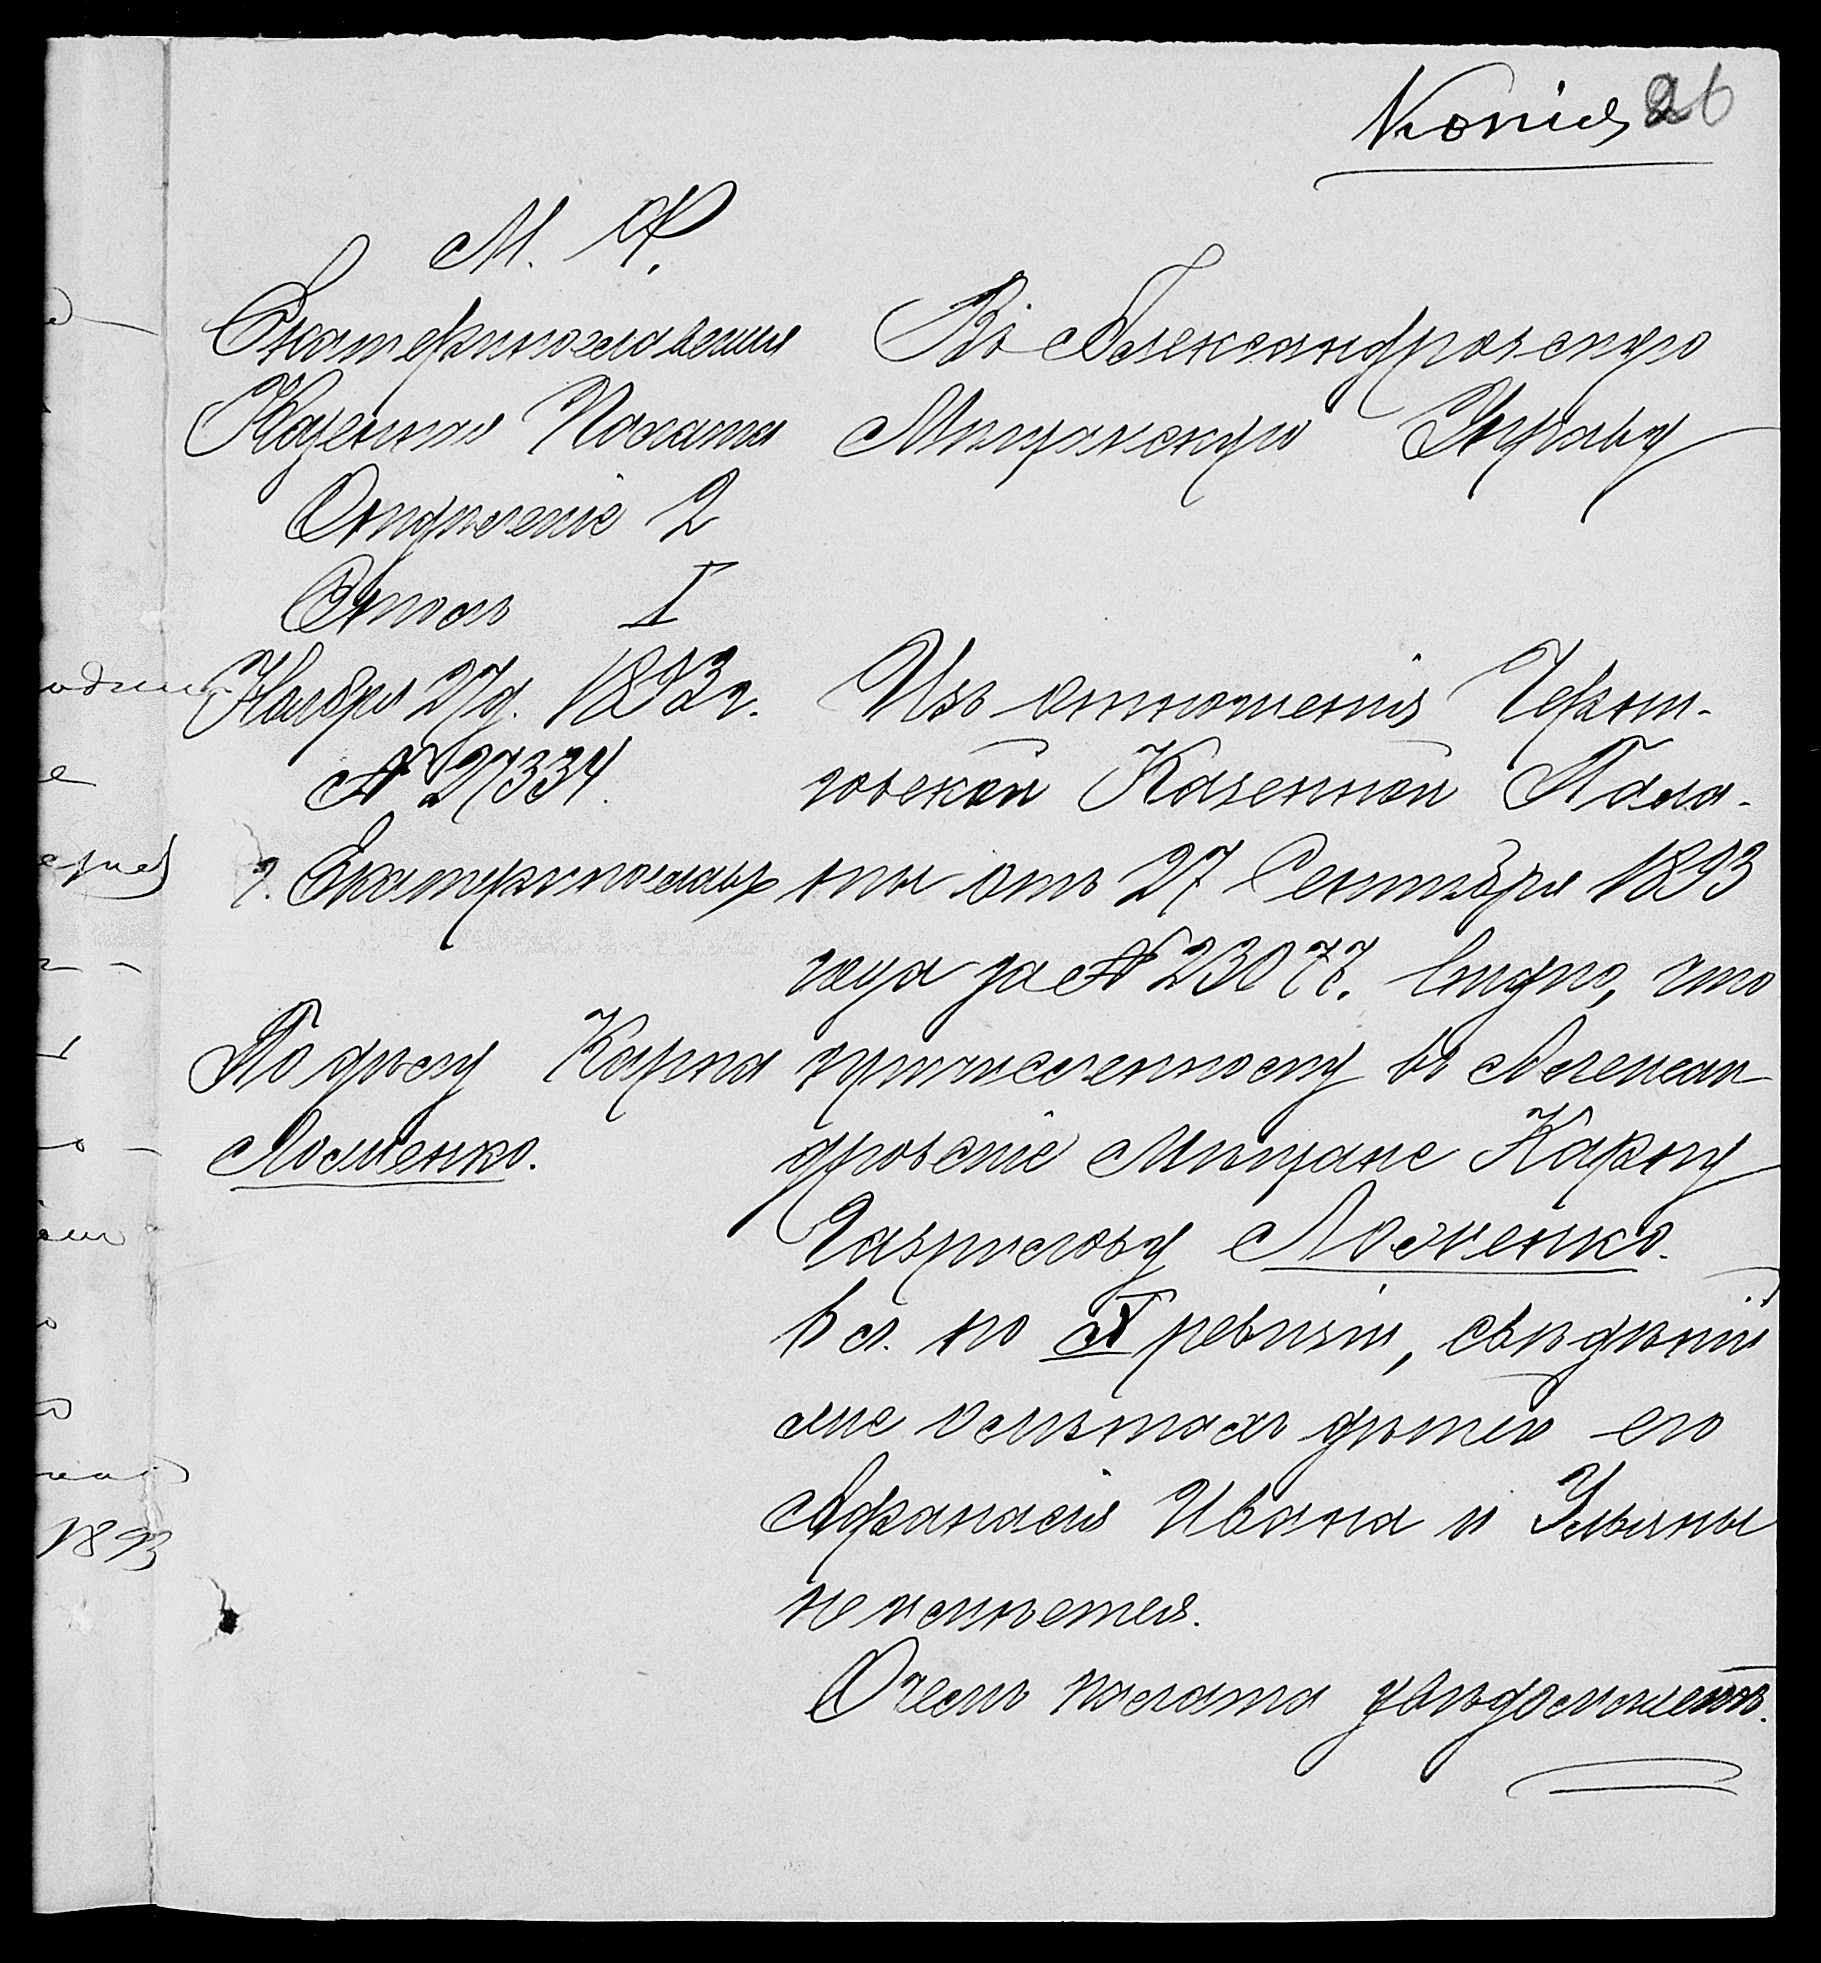 Копія 26
М. Ф.
Екатеринославская
Казенная Палата
Отделеніе 2
Столъ I
Ноября 27 д. 1893 г.
№ 27334.
г. Екатеринославъ
По делу Карпа
Лосченко.
Въ Александровскую
Мещанскую Управу
Изъ отношенія Черни-
говской Казенной Пала-
ты отъ 27 Сентября 1893
года за № 23077. видно, что
причисленному въ Алексан-
дровскіе Мещане Карпу
Гаврилову
въ сл. по ревизіи, сведеній
о летахъ детей его
Афанасія Ивана и Ульяны
не имеется.
О чемъ палата уведомляетъ.
1893